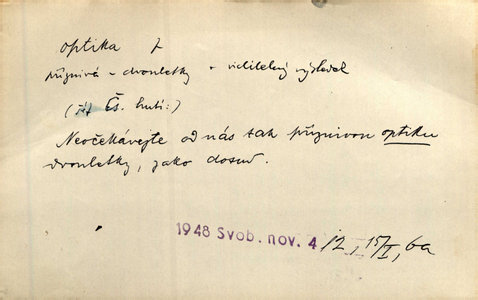 optika f
příznivá ~ dvouletky = viditelný výsledek
(řed. Čs. hutí:)
Neočekávejte od nás tak příznivou optiku
dvouletky, jako dosud.
1948 Svob. nov. 4 12, 15/I, 6a